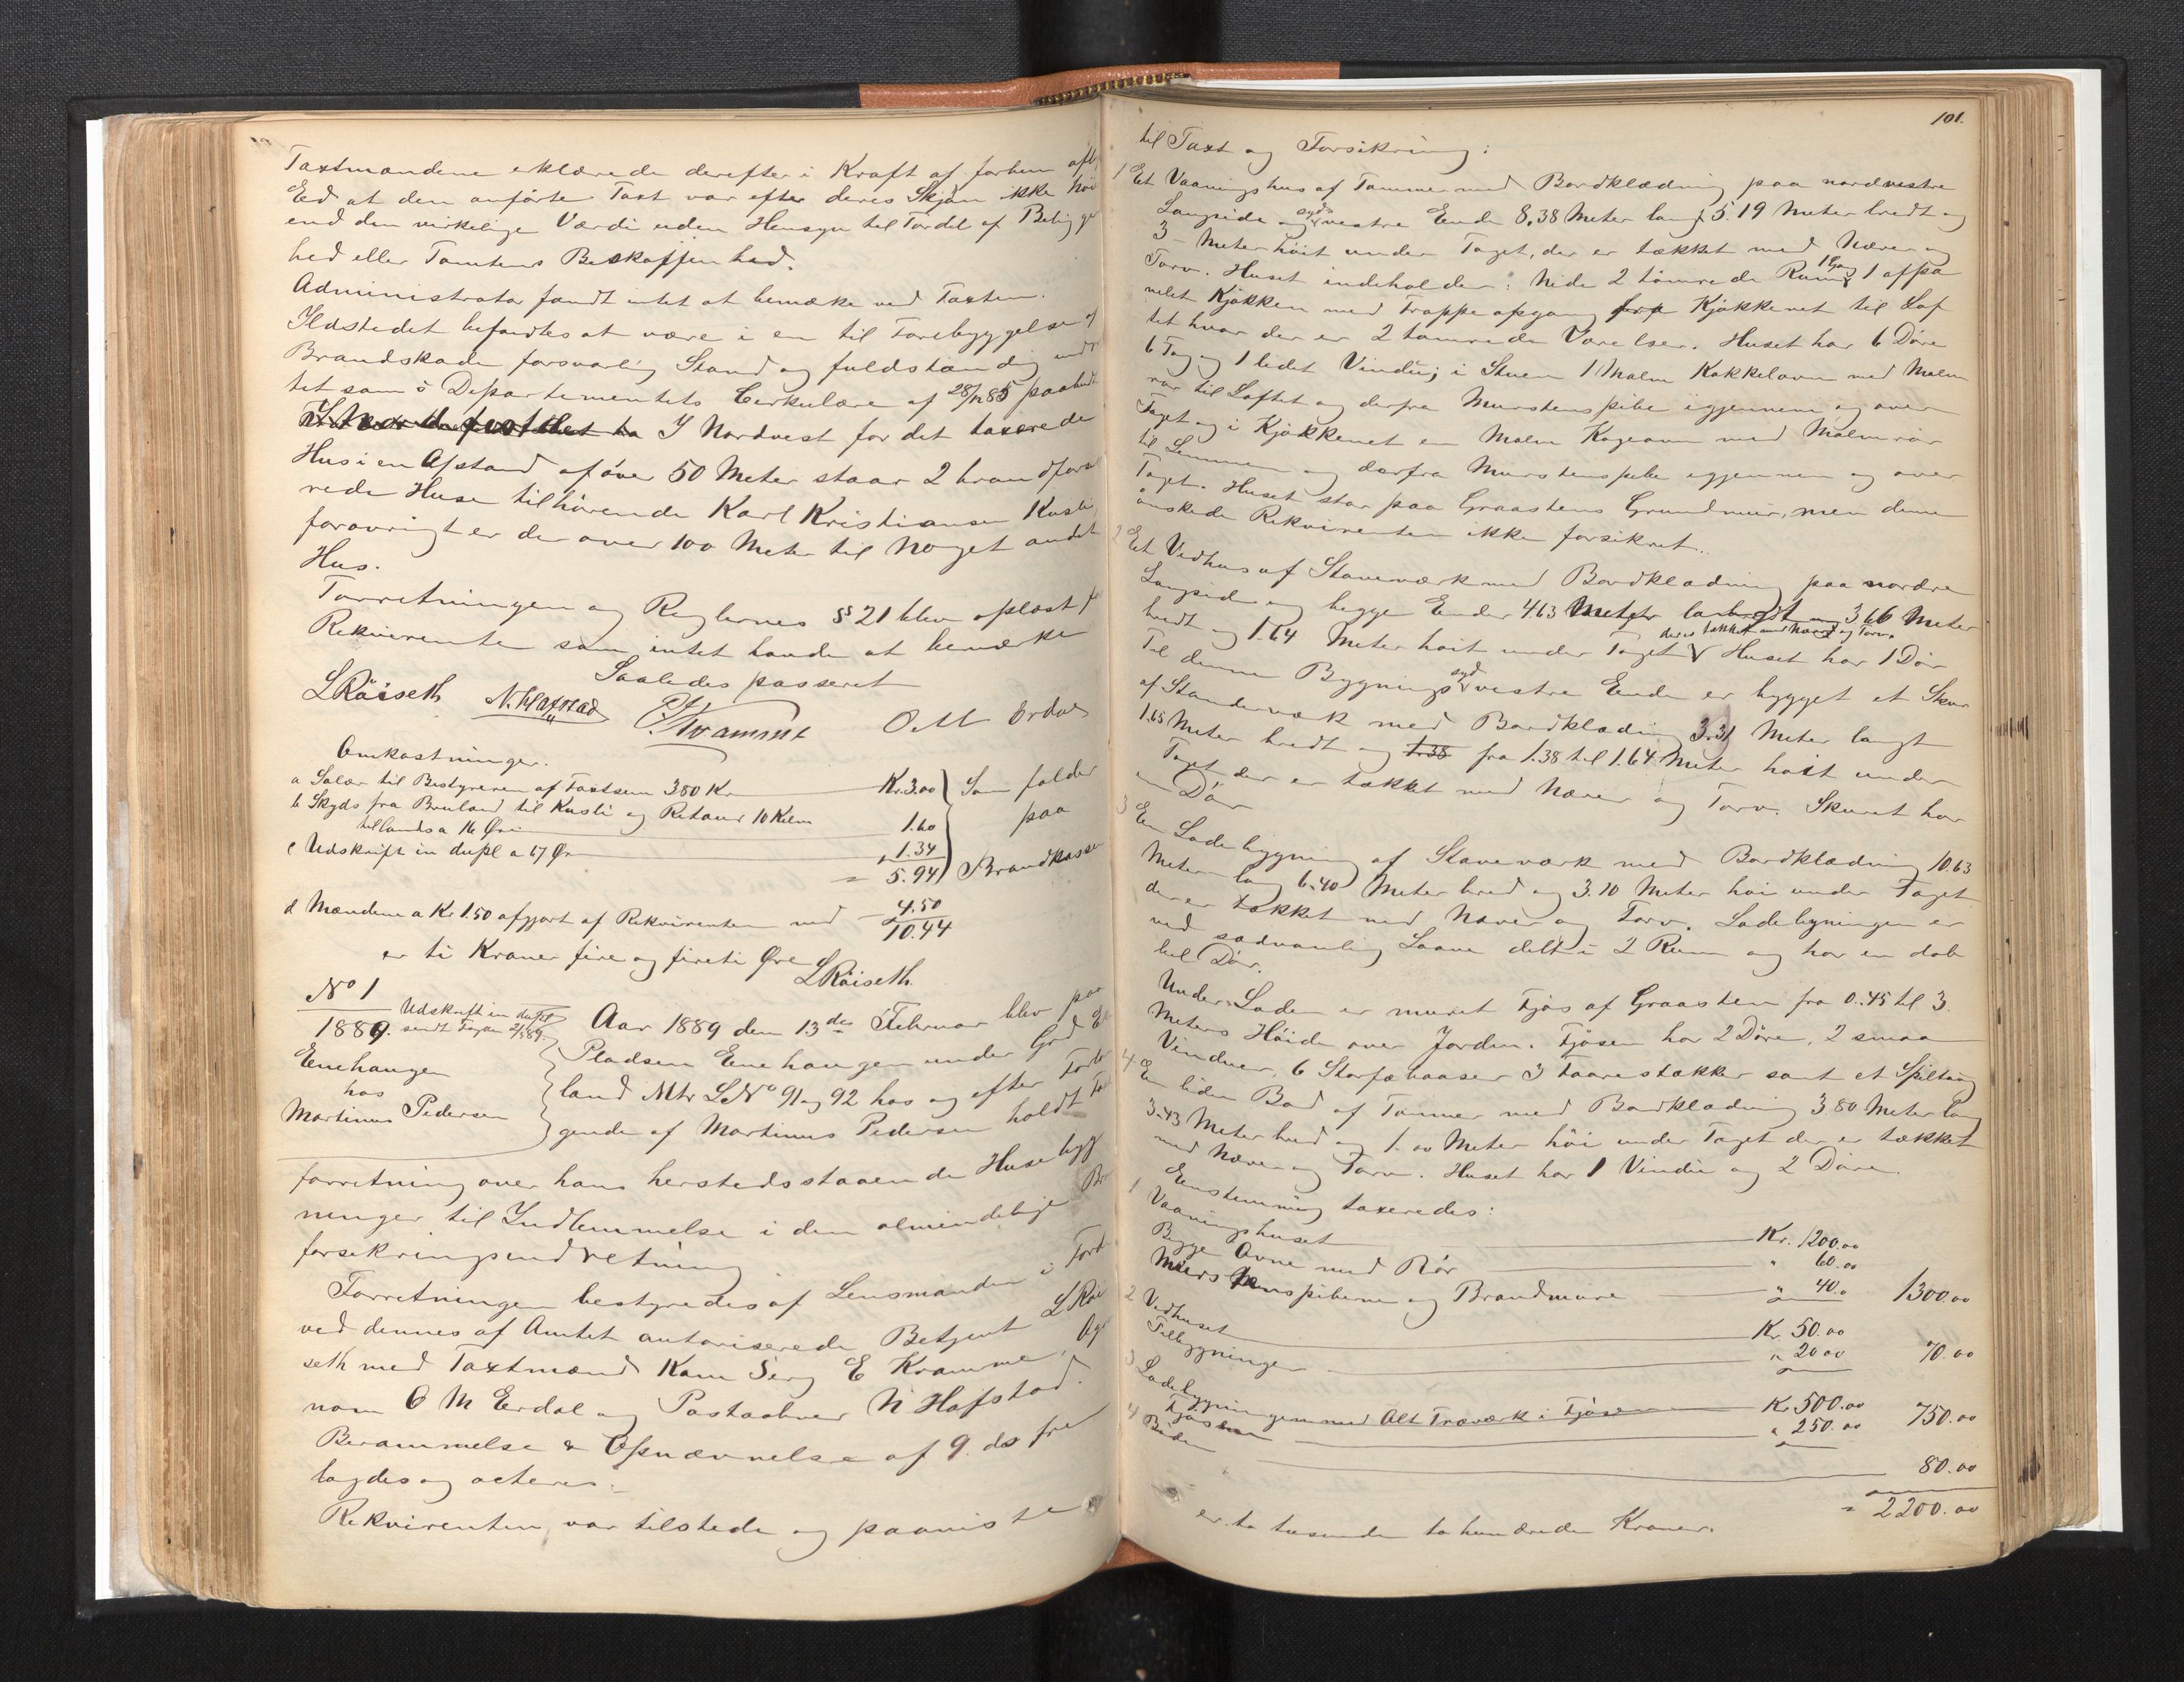 Taxtmændene erklærede derefter i Kraft af forhen afl
Ed at den anførte Taxt var efter deres Skjøn ikke høi
end den virkelige Værdi uden Hensyn til Fordel af Beligge
hed eller Tomtens Beskaffenhed.
Administrator fandt intet at bemærke ved Taxten.
Ildstedet befandtes at være i en til Forebyggelse af
Brandskade forsvarlig Stand og fuldstændig
tet som i Departementets Cirkulære af 28/11 85 paabudt
I Nordvest for det taxerede
Hus i en Afstand af over 50 Meter staar 2 brandforsi
rede Huse tilhørende Karl Kristiansen Kusli,
forøvrigt er der over 100 Meter til noget andet
Hus.
Forretningen og Reglernes § 21 blev oplæst f
Rekvirenten som intet havde at bemærke
Saaledes passeret
LRøiseth N. Hafstad E Kramme O M Erdal
Omkostninger.
a Salær til Bestyreren af Taxtsum 380 Kr Kr. 3.00 Som falder
b Skyds fra Bruland til Kusli og Retour 10 Kilm paa
tillands a 16 Øre 1.60
c Udskrift in dupl a 67 Øre 1.34
= 5.94 Brandkassen
d Mændene a Kr 1.50 afgjort af Rekvirenten med 4.50
10.44
er ti Kroner fire og fireti Øre
LRøiseth.
No 1
1889. Udskrift in dupl sendt Fogden 2/5 89.
Enehaugen
hos
Martinus Pedersen
Aar 1889 den 13de Februar blev paa
Pladsen Enehaugen under Grd
land Mtr LNo 91 og 92 hos og efter Forla
gende af Martinus Pedersen holdt
forretning over hans herstedsstaaende Husebyg
ninger til Indlemmelse i den almindelige Br
forsikringsindretning
Forretningen bestyredes af Lensmanden i Førde
ved dennes af Amtet autoriserede Betjent L Røi
seth med Taxtmænd Kom Serg E Kramme,
nom O M Erdal og Postaabner N Hafstad.
Berammelse & Opnævnelse af 9. ds fre
lagdes og acteres.
Rekvirenten var tilstede og paaviste
101.
til Taxt og Forsikring:
1 Et Vaaningshus af Tømmer med Bordklædning paa nordvestre
Langside og sydvestre Ende 8.38 Meter langt 5.19 Meter bredt og
3 - Meter høit under Taget, der er tækket med Næver og
Torv. Huset indeholder: Nede 2 tømrede Rum, 1 Gang 1 afpa
nelet Kjøkken med Trappeopgang fra Kjøkkenet til Lof
tet hvor der er 2 tømrede Værelser. Huset har 6 Døre
6 Fag og 1 lidet Vindu; i Stuen 1 Malm Kakkelovn med Malm
rør til Loftet og derfra Murstenspibe igjennem og over
Taget og i Kjøkkenet en Malm Kogeovn med Malmrør
til Lemmen og derfra Murstenspibe igjennem og over
Taget. Huset star paa Graastens Grundmur, men denne
ønskede Rekvirenten ikke forsikret.
2 Et Vedhus af Staveværk med Bordklædning paa nordre
Langside og begge Ender 4.63 Meter langt 3.66 Meter
bredt og 1.64 Meter høit under Taget der er tækket med Næver og Torv. Huset har 1 Dør
Til denne Bygnings sydvestre Ende er bygget et Skur
af Standerværk med Bordklædning 3.31 Meter langt
1.65 Meter bredt og 1.38 fra 1.38 til 1.64 Meter høit under
Taget der er tækket med Næver og Torv. Skuret har
en Dør
3 En Ladebygning af Staveværk med Bordklædning 10.63
Meter lang 6.40 Meter bred og 3.10 Meter høi under Taget
der er tækket med Næver og Torv. Ladebygningen er
ved sædvanlig Laave delt i 2 Rum og har en dob
bel Dør.
Under Laden er muret Fjøs af Graasten fra 0.45 til 3.
Meters Høide over Jorden. Fjøsen har 2 Døre, 2 smaa
Vinduer, 6 Storfæbaaser 3 Faarestækker samt et Spiltaug
4 En liden Bod af Tømmer med Bordklædning 3.80 Meter lang
3.43 Meter bred og 1.00 Meter høi under Taget der er tækket
med Næver og Torv. Huset har 1 Vindu og 2 Døre.
Eenstemmig taxeredes:
1 Vaaningshuset Kr. 1200.00
Begge Ovne med Rør " 60.00
Murstenspiberne og Brandmure " 40.0 1300.00
2 Vedhuset Kr. 50.00
Tilbygningen " 20.00 70.00
3 Ladebygningen med Alt Træværk i Fjøsen Kr. 500.00
Fjøsen " 250.00 750.00
4 Boden 80.00
= 2200.00
er to tusende to hundrede Kroner.